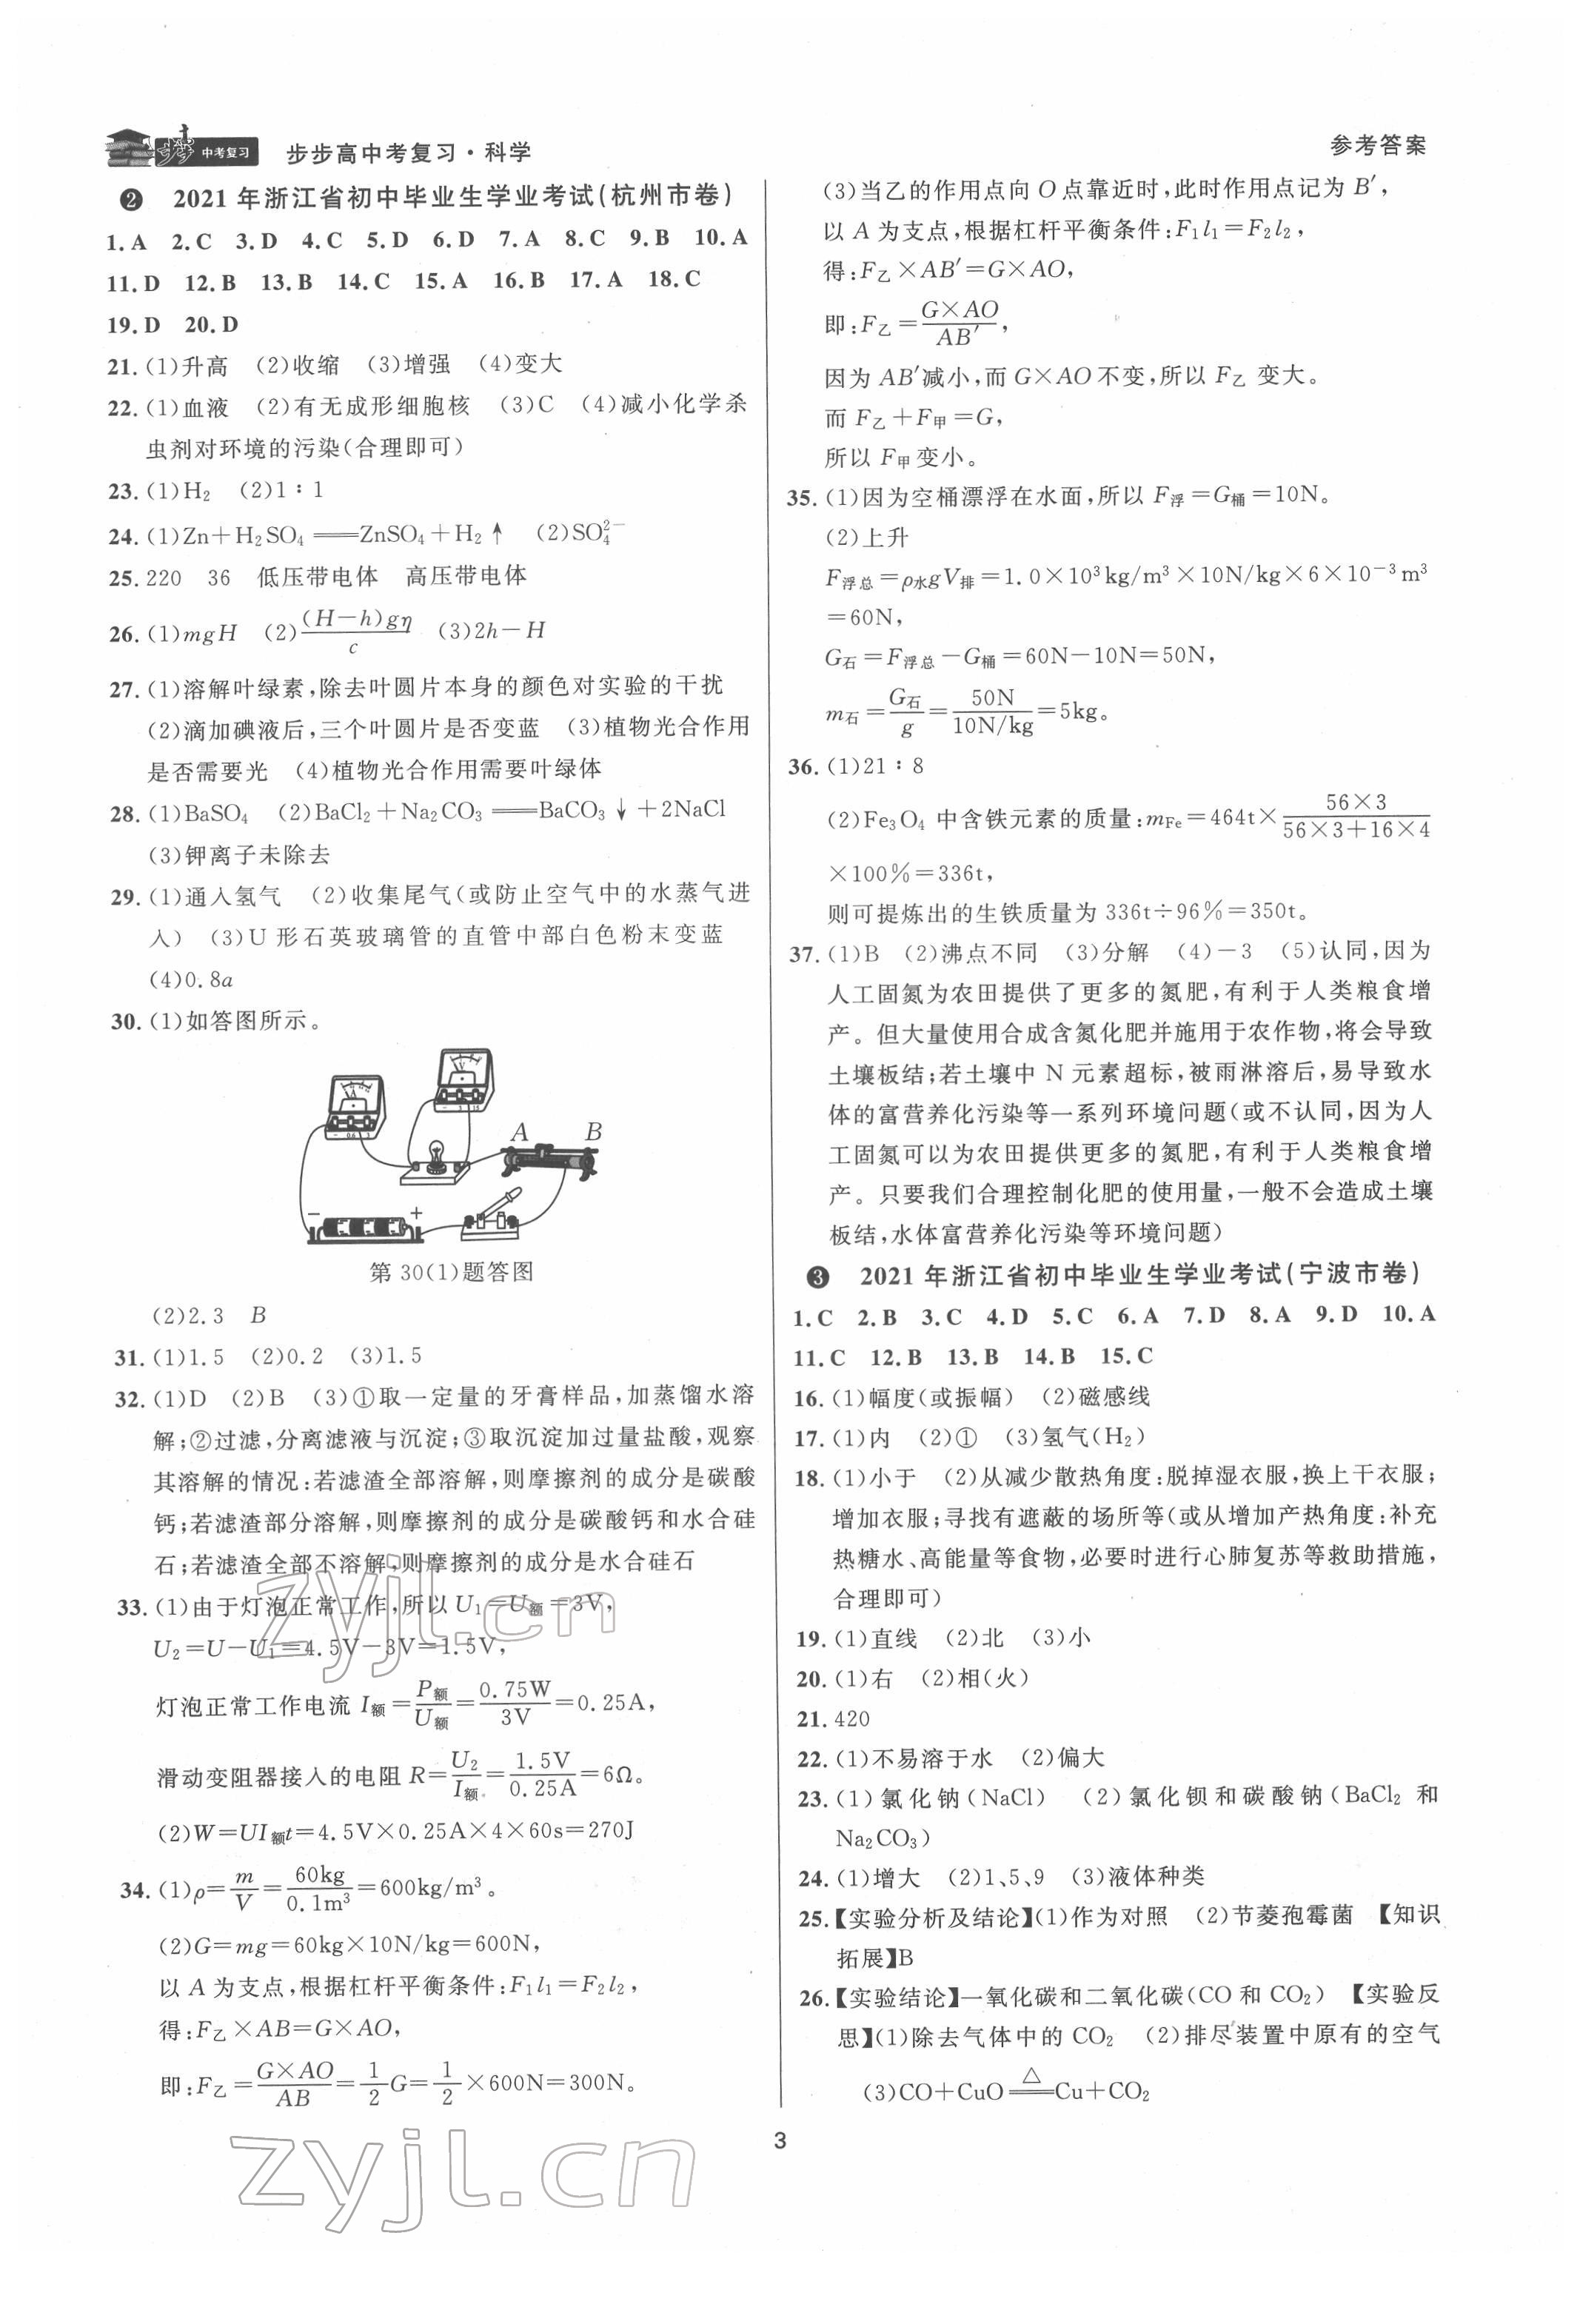 中考复习 步步高中考复习·科学
参考答案
❷ 2021年浙江省初中毕业生学业考试(杭州市卷)
1.A 2.C 3.D 4.C 5.D 6.D 7.A 8.C 9.B 10.A
11.D 12.B 13.B 14.C 15.A 16.B 17.A 18.C
19.D 20.D
21.(1)升高 (2)收缩 (3)增强 (4)变大
22.(1)血液 (2)有无成形细胞核 (3)C (4)减小化学杀
虫剂对环境的污染(合理即可)
23.(1)H₂ (2)1∶1
24.(1)Zn+H₂SO₄══ZnSO₄+H₂↑ (2)SO₄²⁻
25.220 36 低压带电体 高压带电体
26.(1)mgH (2)(H-h)gη/c (3)2h-H
27.(1)溶解叶绿素,除去叶圆片本身的颜色对实验的干扰
(2)滴加碘液后,三个叶圆片是否变蓝 (3)植物光合作用
是否需要光 (4)植物光合作用需要叶绿体
28.(1)BaSO₄ (2)BaCl₂+Na₂CO₃══BaCO₃↓+2NaCl
(3)钾离子未除去
29.(1)通入氢气 (2)收集尾气(或防止空气中的水蒸气进
入) (3)U形石英玻璃管的直管中部白色粉末变蓝
(4)0.8a
30.(1)如答图所示。
A B
- +
第30(1)题答图
(2)2.3 B
31.(1)1.5 (2)0.2 (3)1.5
32.(1)D (2)B (3)①取一定量的牙膏样品,加蒸馏水溶
解;②过滤,分离滤液与沉淀;③取沉淀加过量盐酸,观察
其溶解的情况:若滤渣全部溶解,则摩擦剂的成分是碳酸
钙;若滤渣部分溶解,则摩擦剂的成分是碳酸钙和水合硅
石;若滤渣全部不溶解,则摩擦剂的成分是水合硅石
33.(1)由于灯泡正常工作,所以U₁=U额=3V,
U₂=U-U₁=4.5V-3V=1.5V,
灯泡正常工作电流I额=P额/U额=0.75W/3V=0.25A,
滑动变阻器接入的电阻R=U₂/I额=1.5V/0.25A=6Ω。
(2)W=UI额t=4.5V×0.25A×4×60s=270J
34.(1)ρ=m/V=60kg/0.1m³=600kg/m³。
(2)G=mg=60kg×10N/kg=600N,
以A为支点,根据杠杆平衡条件:F₁l₁=F₂l₂,
得:F乙×AB=G×AO,
即:F乙=G×AO/AB=1/2G=1/2×600N=300N。
(3)当乙的作用点向O点靠近时,此时作用点记为B′,
以A为支点,根据杠杆平衡条件:F₁l₁=F₂l₂,
得:F乙×AB′=G×AO,
即:F乙=G×AO/AB′,
因为AB′减小,而G×AO不变,所以F乙变大。
而F乙+F甲=G,
所以F甲变小。
35.(1)因为空桶漂浮在水面,所以F浮=G桶=10N。
(2)上升
F浮总=ρ水gV排=1.0×10³kg/m³×10N/kg×6×10⁻³m³
=60N,
G石=F浮总-G桶=60N-10N=50N,
m石=G石/g=50N/10N/kg=5kg。
36.(1)21∶8
(2)Fe₃O₄中含铁元素的质量:mFe=464t×56×3/56×3+16×4
×100%=336t,
则可提炼出的生铁质量为336t÷96%=350t。
37.(1)B (2)沸点不同 (3)分解 (4)-3 (5)认同,因为
人工固氮为农田提供了更多的氮肥,有利于人类粮食增
产。但大量使用合成含氮化肥并施用于农作物,将会导致
土壤板结;若土壤中N元素超标,被雨淋溶后,易导致水
体的富营养化污染等一系列环境问题(或不认同,因为人
工固氮可以为农田提供更多的氮肥,有利于人类粮食增
产。只要我们合理控制化肥的使用量,一般不会造成土壤
板结,水体富营养化污染等环境问题)
❸ 2021年浙江省初中毕业生学业考试(宁波市卷)
1.C 2.B 3.C 4.D 5.C 6.A 7.D 8.A 9.D 10.A
11.C 12.B 13.B 14.B 15.C
16.(1)幅度(或振幅) (2)磁感线
17.(1)内 (2)① (3)氢气(H₂)
18.(1)小于 (2)从减少散热角度:脱掉湿衣服,换上干衣服;
增加衣服;寻找有遮蔽的场所等(或从增加产热角度:补充
热糖水、高能量等食物,必要时进行心肺复苏等救助措施,
合理即可)
19.(1)直线 (2)北 (3)小
20.(1)右 (2)相(火)
21.420
22.(1)不易溶于水 (2)偏大
23.(1)氯化钠(NaCl) (2)氯化钡和碳酸钠(BaCl₂和
Na₂CO₃)
24.(1)增大 (2)1、5、9 (3)液体种类
25.【实验分析及结论】(1)作为对照 (2)节菱孢霉菌 【知识
拓展】B
26.【实验结论】一氧化碳和二氧化碳(CO和CO₂) 【实验反
思】(1)除去气体中的CO₂ (2)排尽装置中原有的空气
(3)CO+CuO═△═Cu+CO₂
3
zyjl.cn
zyjl.cn